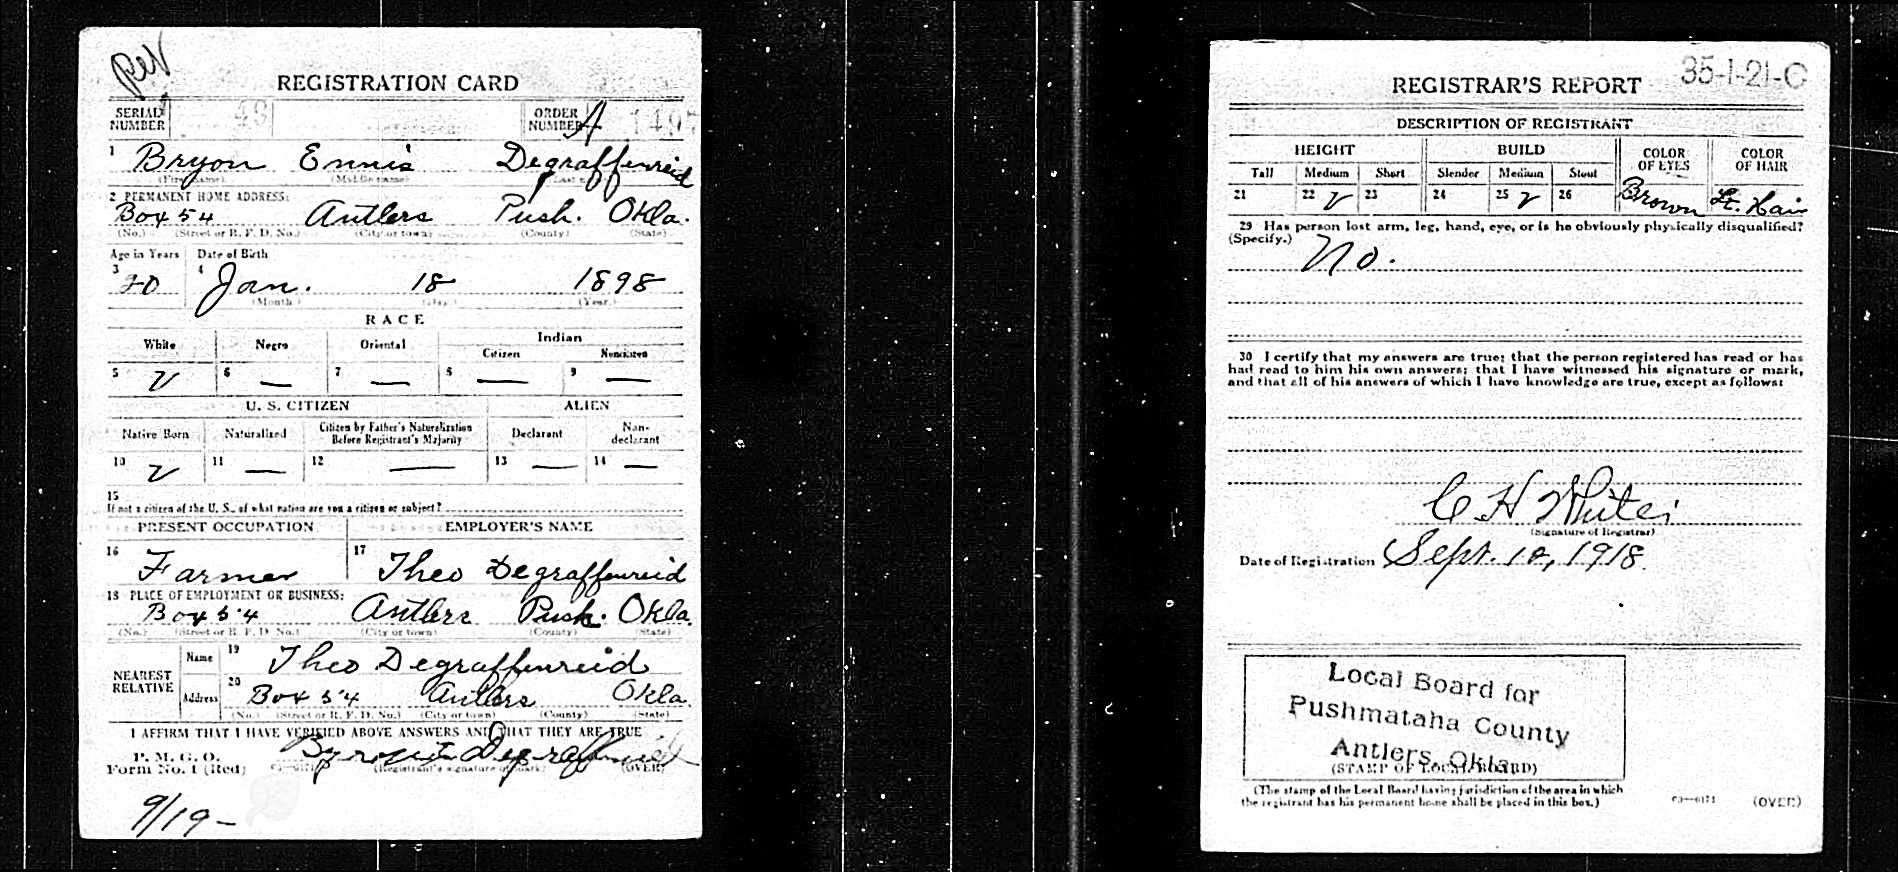 Rev
REGISTRATION CARD
SERIAL NUMBER 49 ORDER NUMBER A
1 Bryon Ennis Degraffenreid
(First name) (Middle name) (Last name)
2 PERMANENT HOME ADDRESS:
Box 54 Antlers Push. Okla.
(No.) (Street or R. F. D. No.) (City or town) (County) (State)
Age in Years Date of Birth
3 20 4 Jan. 18 1898
(Month.) (Day.) (Year.)
RACE
White Negro Oriental Indian
Citizen Noncitizen
5 V 6 — 7 — 8 — 9 —
U. S. CITIZEN ALIEN
Native Born Naturalized Citizen by Father's Naturalization Before Registrant's Majority Declarant Non-declarant
10 V 11 — 12 — 13 — 14 —
15
If not a citizen of the U. S., of what nation are you a citizen or subject?
PRESENT OCCUPATION EMPLOYER'S NAME
16 Farmer 17 Theo Degraffenreid
18 PLACE OF EMPLOYMENT OR BUSINESS:
Box 54 Antlers Push. Okla.
(No.) (Street or R. F. D. No.) (City or town) (County) (State)
NEAREST RELATIVE
Name 19 Theo Degraffenreid
Address 20 Box 54 Antlers Okla.
(No.) (Street or R. F. D. No.) (City or town) (County) (State)
I AFFIRM THAT I HAVE VERIFIED ABOVE ANSWERS AND THAT THEY ARE TRUE
P. M. G. O.
Form No. 1 (Red) Degraffenreid
(Registrant's signature or mark) (OVER)
9/19-
REGISTRAR'S REPORT 35-1-21-C
DESCRIPTION OF REGISTRANT
HEIGHT BUILD COLOR OF EYES COLOR OF HAIR
Tall Medium Short Slender Medium Stout
21 22 V 23 24 25 V 26 Brown Lt. Hair
29 Has person lost arm, leg, hand, eye, or is he obviously physically disqualified?
(Specify.) No.
30 I certify that my answers are true; that the person registered has read or has
had read to him his own answers; that I have witnessed his signature or mark,
and that all of his answers of which I have knowledge are true, except as follows:
C H
(Signature of Registrar)
Date of Registration Sept. 12, 1918.
Local Board for
Pushmataha County
Antlers, Okla.
(STAMP OF LOCAL BOARD)
(The stamp of the Local Board having jurisdiction of the area in which
the registrant has his permanent home shall be placed in this box.)
03—6171 (OVER)